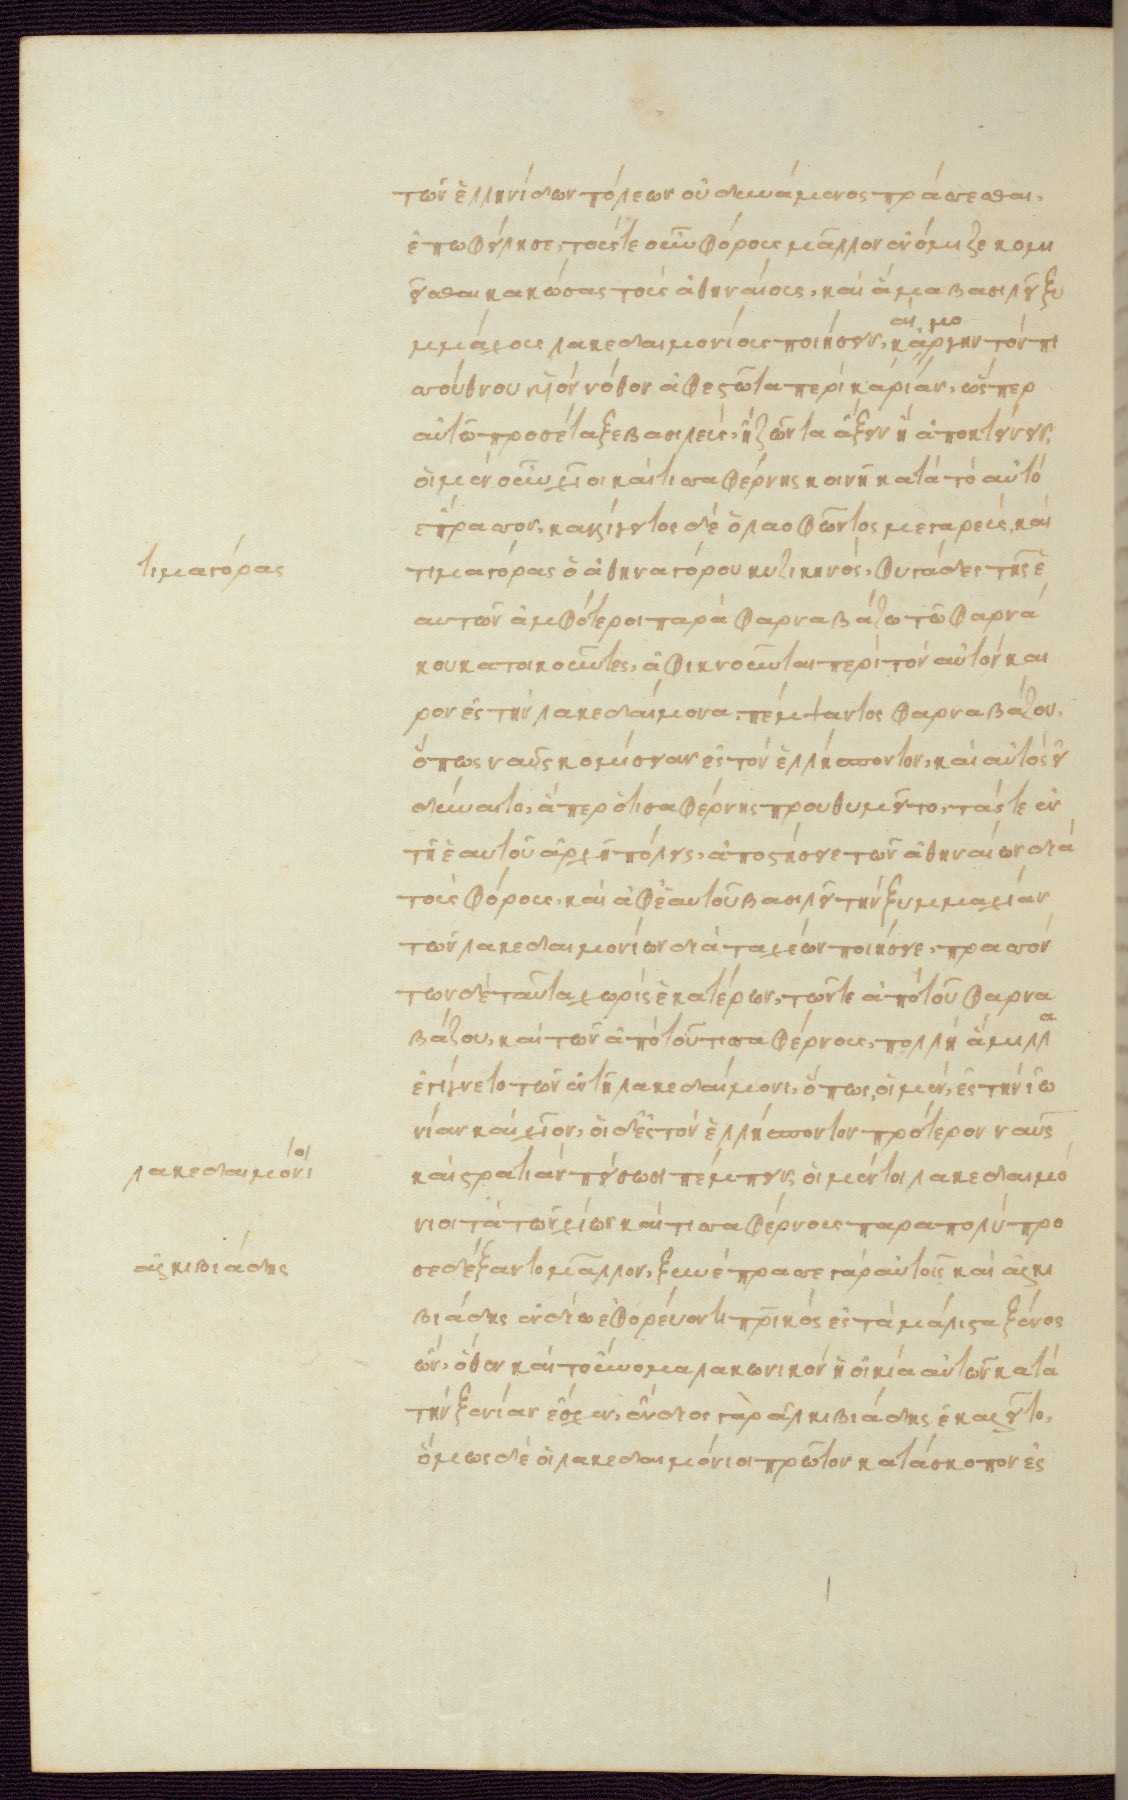 τῶν ἑλληνίδων πόλεων οὐ δυνάμενος πράσσεσθαι,
ἐπωφείλησε, τούς τε οὖν φόρους μᾶλλον ἐνόμιζε κομι
εῖσθαι κακώσας τοὺς ἀθηναίους, καὶ ἅμα βασιλεῖ ξυ
μμάχους λακεδαιμονίους ποιήσειν, καὶ ἀμόργην τὸν πι
σσούθνου υἱὸν νόθον ἀφεστῶτα περὶ καρίαν, ὥσπερ
αὐτῶ προσέταξε βασιλεὺς, ἢ ζῶντα ἄξειν ἢ ἀποκτείνειν,
οἱ μὲν οὖν χῖοι καὶ τισσαφέρνης κοινῆ κατὰ τὸ αὐτὸ
ἔπρασσον, καλλίγειτος δὲ ὁ λαοφῶντος μεγαρεὺς, καὶ
τιμαγόρας
τιμαγόρας ὁ ἀθηναγόρου κυζικηνός, φυγάδες τῆς ἑ
αυτῶν ἀμφότεροι παρὰ φαρναβάζω τῶ φαρνά
κου κατοικοῦντες, ἀφικνοῦνται περὶ τὸν αὐτὸν και
ρὸν ἐς τὴν λακεδαίμονα, πέμψαντος φαρναβάζου,
ὅπως ναῦς κομίσειαν ἐς τὸν ἑλλήσποντον, καὶ αὐτὸς εἰ
δύναιτο, ἅπερ ὁ τισσαφέρνης προυθυμεῖτο, τάς τε ἐν
τῆ ἑαυτοῦ ἀρχῆ πόλεις, ἀποστήσειε τῶν ἀθηναίων διὰ
τοὺς φόρους, καὶ ἀφ᾽ ἑαυτοῦ βασιλεῖ τὴν ξυμμαχίαν
τῶν λακεδαιμονίων διὰ ταχέων ποιήσειε, πρασσόν
των δὲ ταῦτα χωρὶς ἑκατέρων, τῶν τε ἀπὸ τοῦ φαρνα
βάζου, καὶ τῶν ἀπὸ τοῦ τισσαφέρνους, πολλὴ ἅμιλλα
ἐγίγνετο τῶν ἐν τῆ λακεδαίμονι, ὅπως, οἱ μὲν, ἐς τὴν ἰω
νίαν καὶ χῖον, οἱ δ᾽ ἐς τὸν ἑλλήσποντον πρότερον ναῦς
λακεδαιμόνιοι
καὶ στρατιὰν πείσωσι πέμπειν, οἱ μέντοι λακεδαιμό
νιοι τὰ τῶν χίων καὶ τισσαφέρνους παρὰ πολὺ προ
ἀλκιβιάδης
σεδέξαντο μᾶλλον, ξυνέπρασσε γὰρ αὐτοῖς καὶ ἀλκι
βιάδης ἐνδίω ἐφορεύοντι πατρικὸς ἐς τὰ μάλιστα ξένος
ὢν, ὅθεν καὶ τοὔνομα λακωνικὸν ἡ οἰκία αὐτῶν κατὰ
τὴν ξενίαν ἔσχεν, ἔνδιος γὰρ ἀλκιβιάδης ἐκαλεῖτο,
ὅμως δὲ οἱ λακεδαιμόνιοι πρῶτον κατάσκοπον ἐς